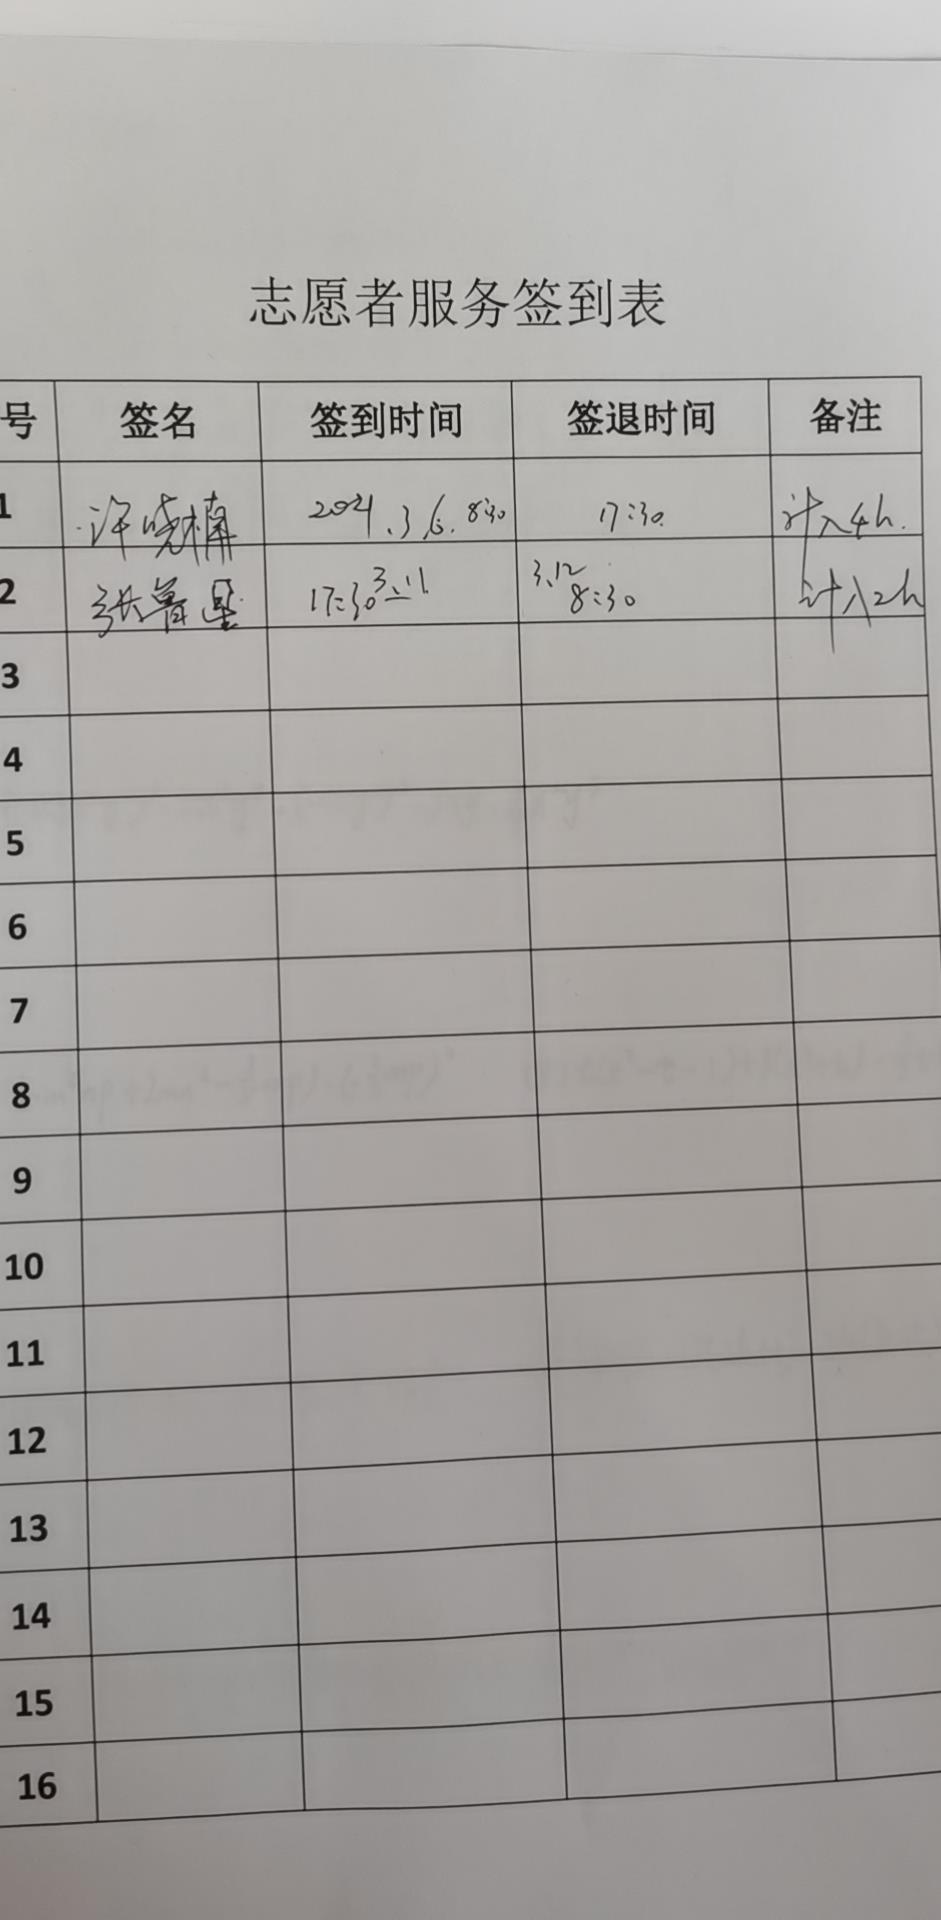 志愿者服务签到表
号 签名 签到时间 签退时间 备注
1 许晓楠 2021.3.6. 8:30 17:30 计入4h.
2 张 星 17:30 3.11 3.12 8:30 计入2h
3
4
5
6
7
8
9
10
11
12
13
14
15
16